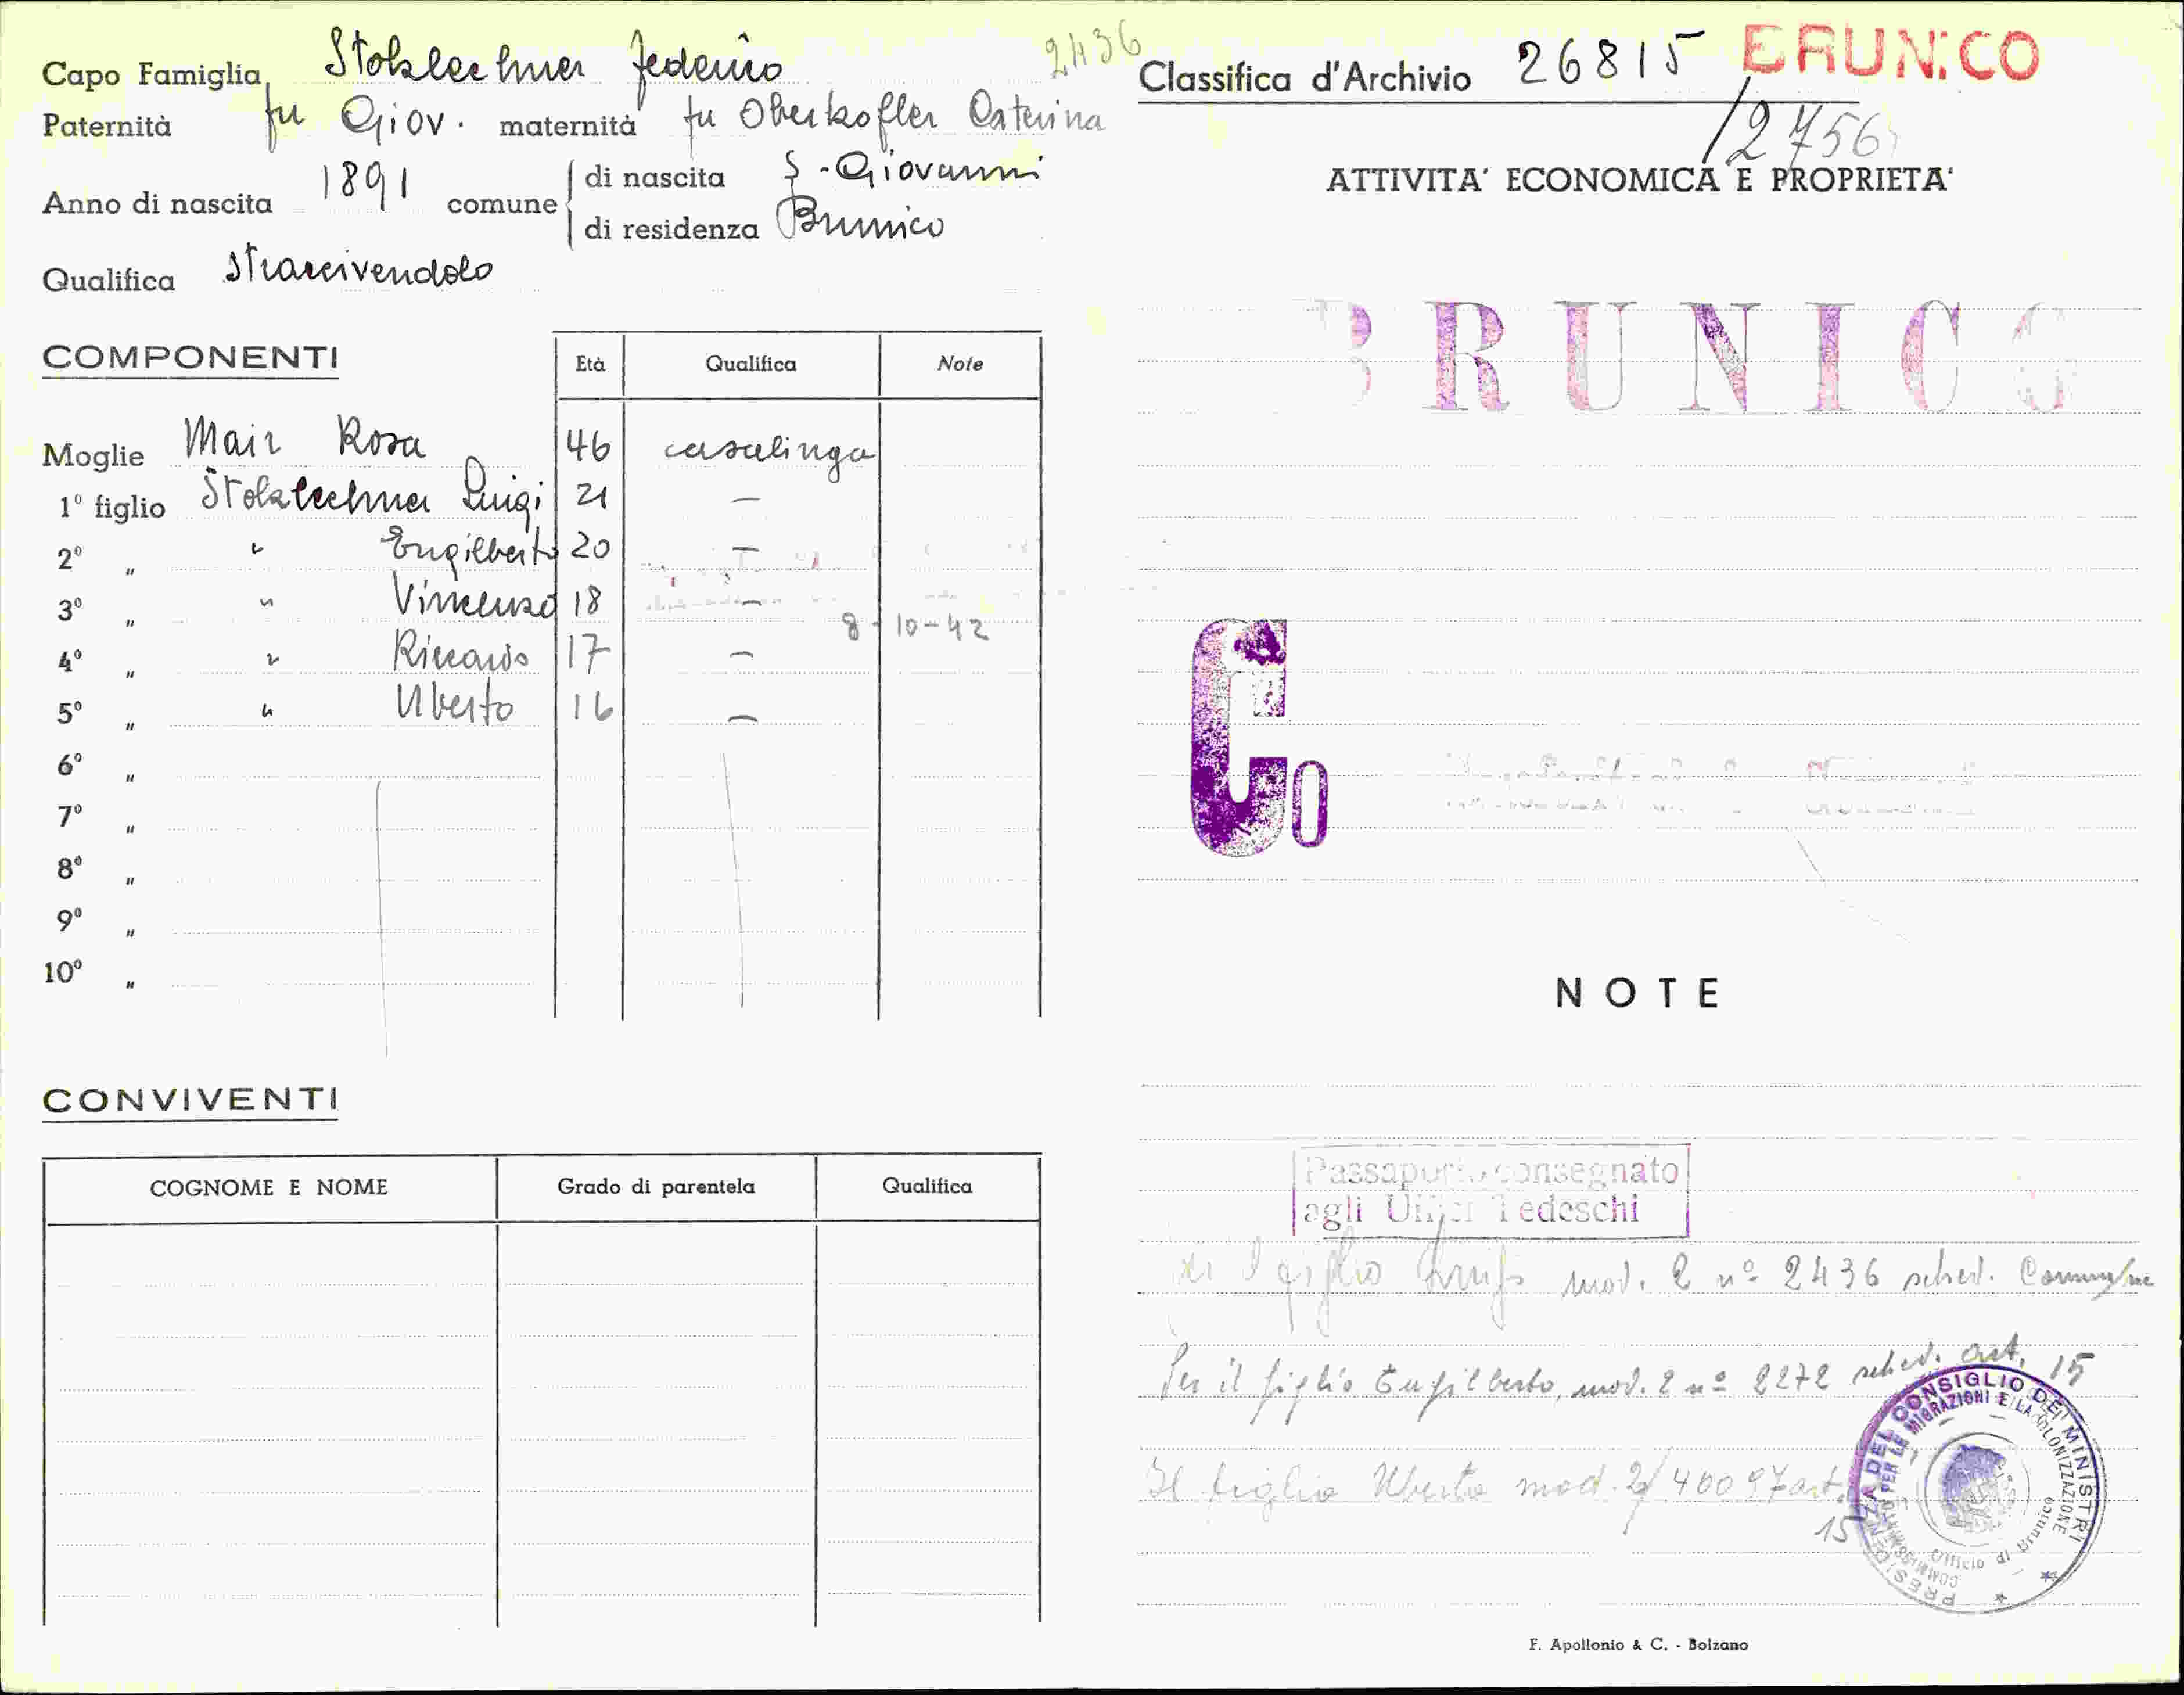 Capo Famiglia Stolzlechner Federico
2436
Paternità fu Giov. maternità fu Oberkofler Caterina
Anno di nascita 1891 comune di nascita S. Giovanni
di residenza Brunico
Qualifica stracivendolo
COMPONENTI Età Qualifica Note
Moglie Mair Rosa 46 casalinga
1º figlio Stolzlechner Luigi 21 —
2º " " Engilberto 20 —
3º " " Vincenzo 18 —
8-10-42
4º " " Riccardo 17 —
5º " " Uberto 16 —
6º "
7º "
8º "
9º "
10º "
CONVIVENTI
COGNOME E NOME Grado di parentela Qualifica
Classifica d'Archivio 26815 BRUNICO
/2756
ATTIVITA' ECONOMICA E PROPRIETA'
BRUNICO
Co
NOTE
Passaporto consegnato
agli Uffici Tedeschi
figlio Luigi mod. 2 nº 2436 sched.
Per il figlio Engilberto, mod. 2 nº 2272 sched. art. 15
Il figlio Uberto mod. 2/40097 art.
15
PRESIDENZA DEL CONSIGLIO DEI MINISTRI
PER LE MIGRAZIONI E LA COLONIZZAZIONE
Ufficio di Brunico
F. Apollonio & C. - Bolzano